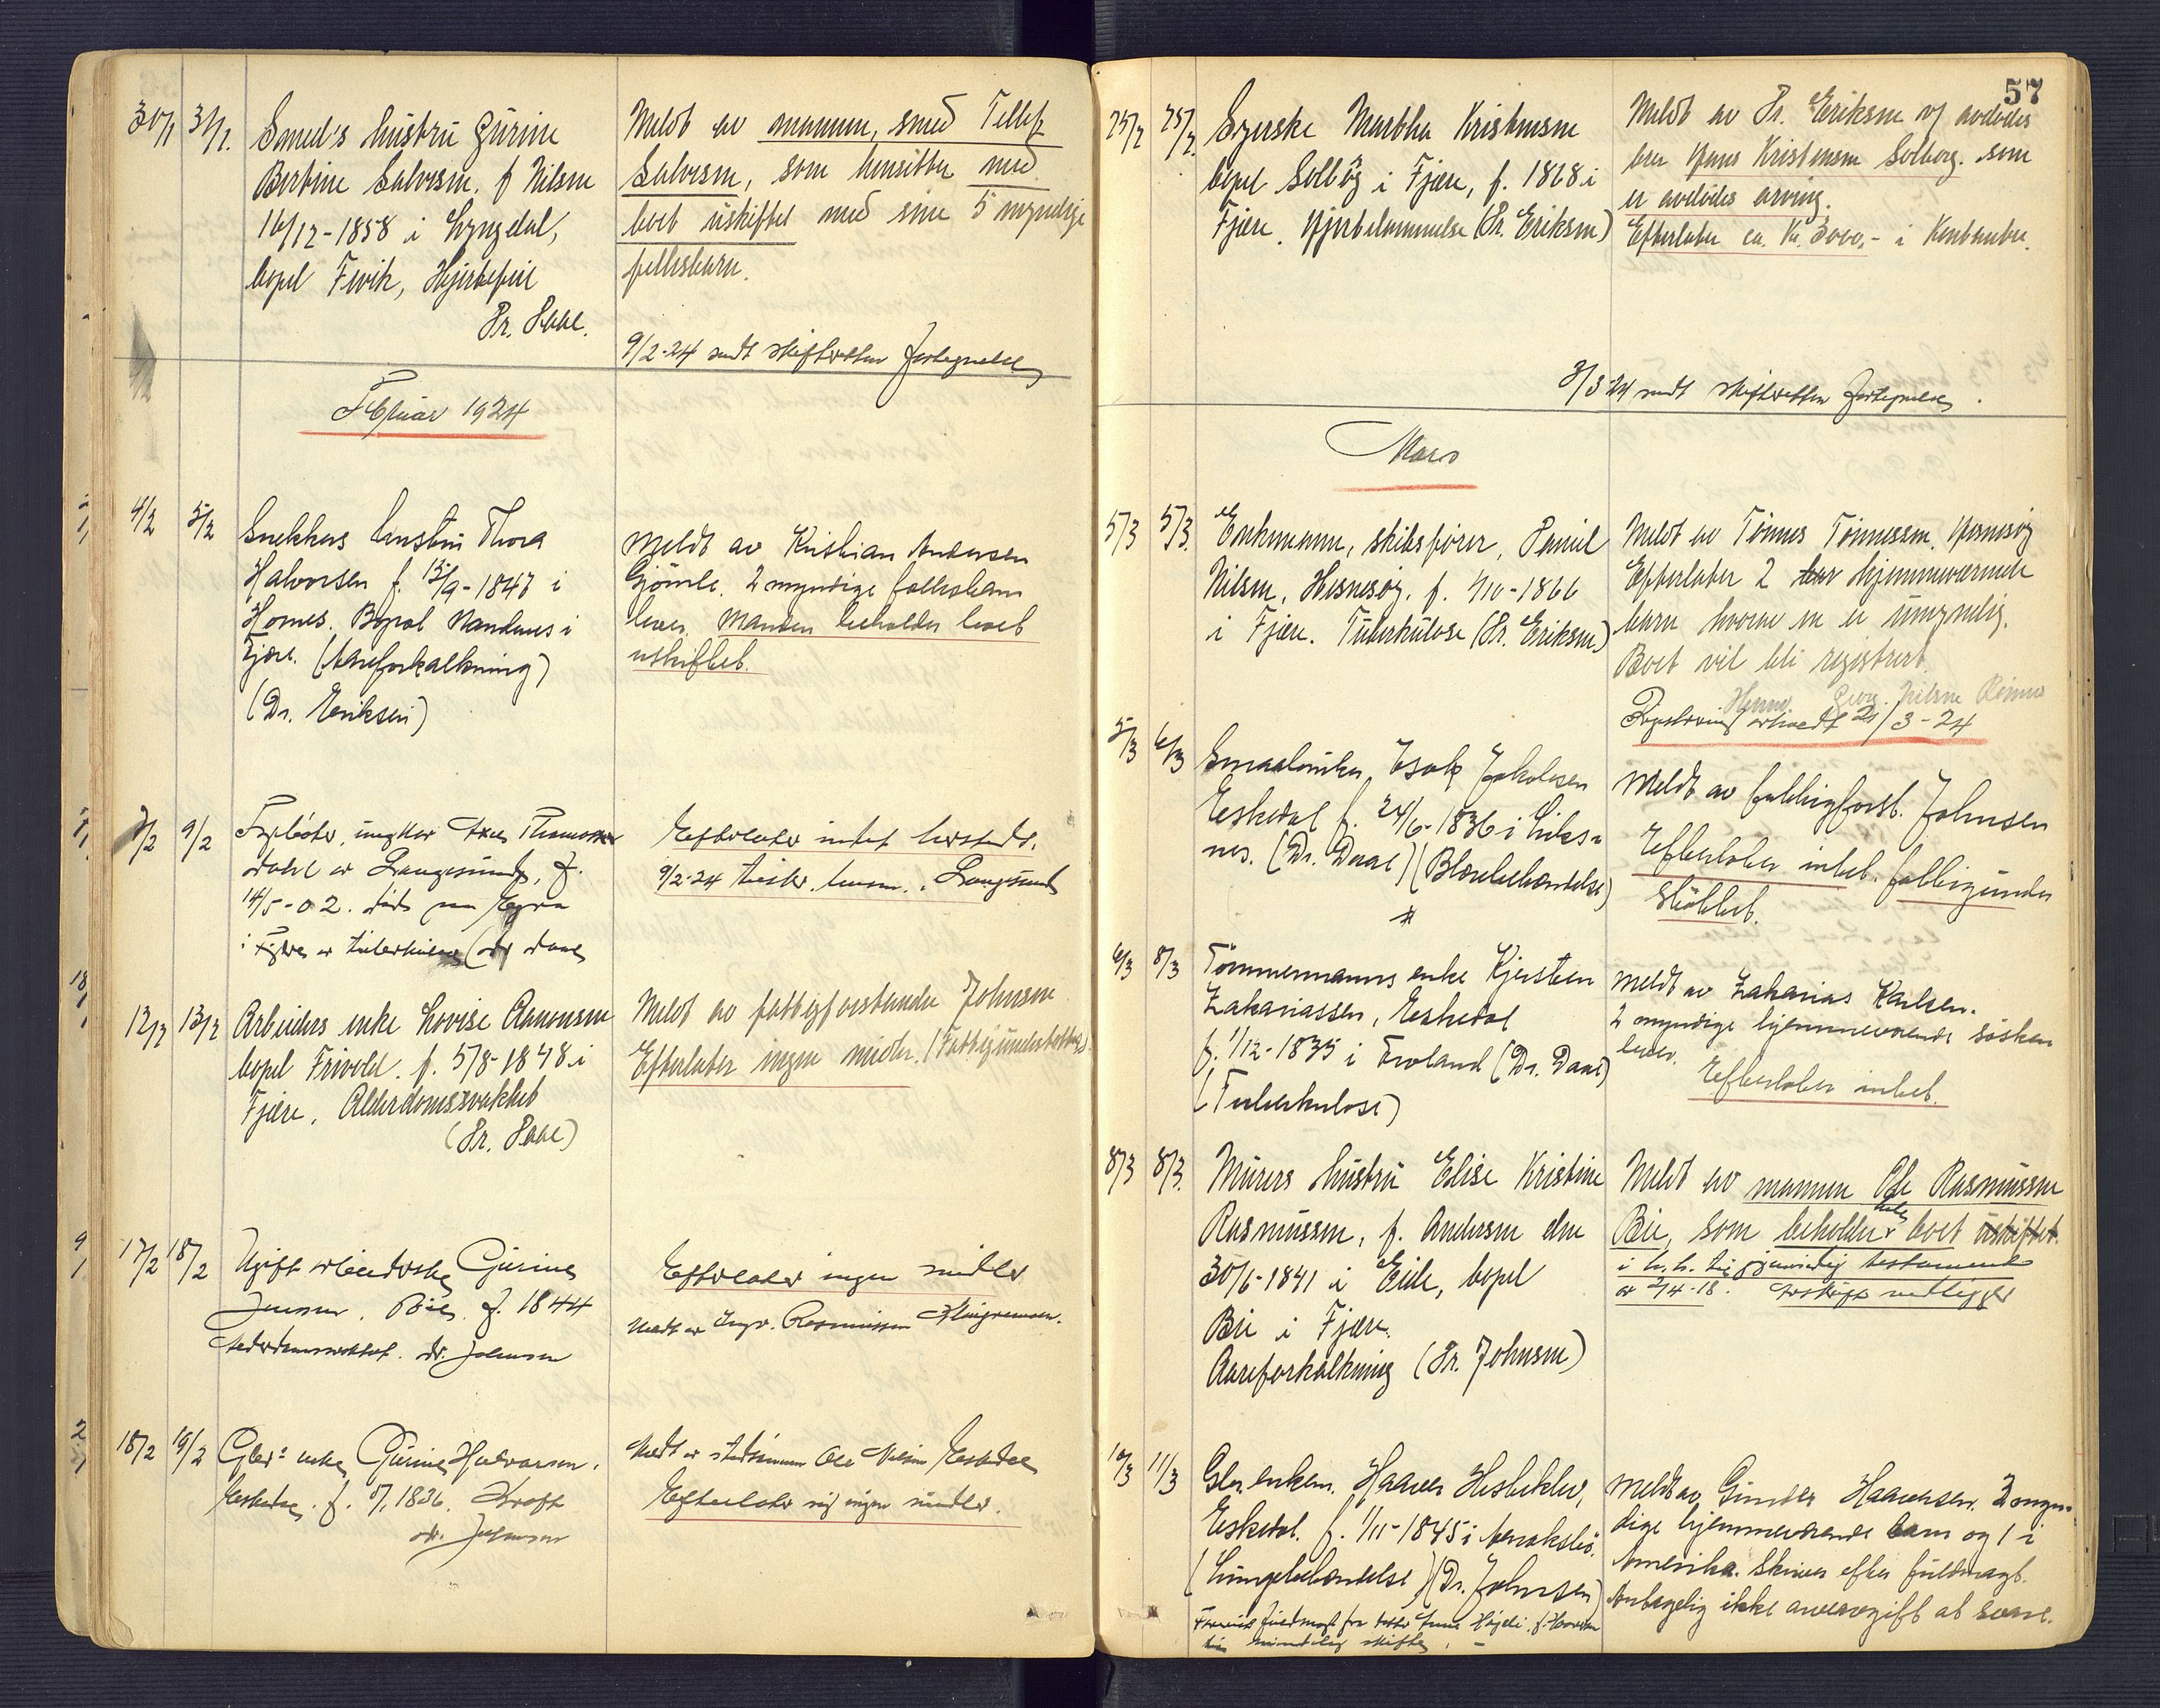 30/1 31/1. Smed's hustru Gurine
Bertine Salvesen. f Nilsen
16/12-1858 i Lyngdal,
bopel Fevik, Hjertefeil
Dr. Daae.
Meldt av mannen, smed Tellef
Salvesen, som hensitter med
boet uskiftet med sine 5 myndige
fellesbarn.
9/2-24 sendt skifteretten fortegnelse
Februar 1924
4/2 5/2 Snekkers hustru Thora
Halvorsen f. 15/9-1847 i
Homes. Bopæl i
Fjære. (Aareforkalkning)
(Dr. Eriksen)
Meldt av Kristian Andersen
Gjømle. 2 myndige fellesbarn
lever. Manden beholder boet
uskiftet.
9/2 Fyrbøter, ungkar Thomassen
Dahl av Langesund, f.
14/5-02. død paa
i Fjære av tuberkulose (dr Daae
Efterlater intet herstedt.
9/2-24 Langesund
12/2 13/2 Arbeiders enke Lovise Aanonsen
bopel Frivold. f. 5/8-1848 i
Fjære. Alderdomssvakhet
(Dr. Daae)
Meldt av fattigforstander Johnsen
Efterlater ingen midler. (Fattigunderstøttet)
17/2 18/2 Ugift arbeiderske Gurine
Jensen. Bie. f. 1844
Alderdomssvakhet. dr. Johnsen
Efterlater ingen midler
Meldt av Ingv. Rasmussen
18/2 19/2 enke Gurine Halvorsen.
Eskedal. f. 1836.
dr. Johnsen
Meldt av Ole Nilsen Eskedal
Efterlater sig ingen midler.
57
25/2 25/2. Syerske Martha Kristensen
bopel Solbøg i Fjære, f. 1868 i
Fjære. Hjertelammelse (Dr. Eriksen)
Meldt av Dr. Eriksen og avdødes
bror Hans Kristensen Solberg. som
er avdødes arving.
Efterlater ca. Kr. 3000,- i Kontanter.
3/3 24 sendt skifteretten fortegnelse.
Mars
5/3 5/3. Enkemann, skibsfører, Daniel
Nilsen, Hesnesøy. f. 1866
i Fjære. Tuberkulose (Dr. Eriksen)
Meldt av Tønnes Tønnessen. Hesnesøy
Efterlater 2 hjemmeværende
barn hvorav en er umyndig.
Boet vil bli registrert.
Registrering avholdt 21/3-24
5/3 6/3 Smaabruker, Isak Jakobsen
Eskedal f. 24/6-1836 i
nes. (Dr. Daae) (Blærebetændelse)
Meldt av fattigforst. Johnsen
Efterlater intet. fattigunder
støttet.
6/3 8/3 Tømmermanns enke Kjersten
Zakariassen, Eskedal
f. 1/12-1835 i Froland (Dr. Daae)
(Tuberkulose)
Meldt av Zakarias Karlsen.
2 myndige hjemmeværende søsken
lever.
Efterlater intet.
8/3 8/3. Murers hustru Elise Kristine
Rasmussen, f. Andersen den
30/6-1841 i Eide, bopel
Bie i Fjære.
Aareforkalkning (Dr. Johnsen)
Meldt av mannen Ole Rasmussen
Bie, som beholder hele boet uskiftet.
i h. h. til gjensidig testamente
av 2/4-18. Avskrift vedligger
10/3 11/3 enkem. Haaver
Eskedal. f. 1/11-1845 i
(Lungebetændelse) (Dr. Johnsen)
fuldmagt fra datter
mindelig skifte.
Meldt av Gunder Haaversen. 2 myn-
dige hjemmeværende barn og 1 i
Amerika. Skriver efter fuldmagt.
Antagelig ikke arveavgift at svare.